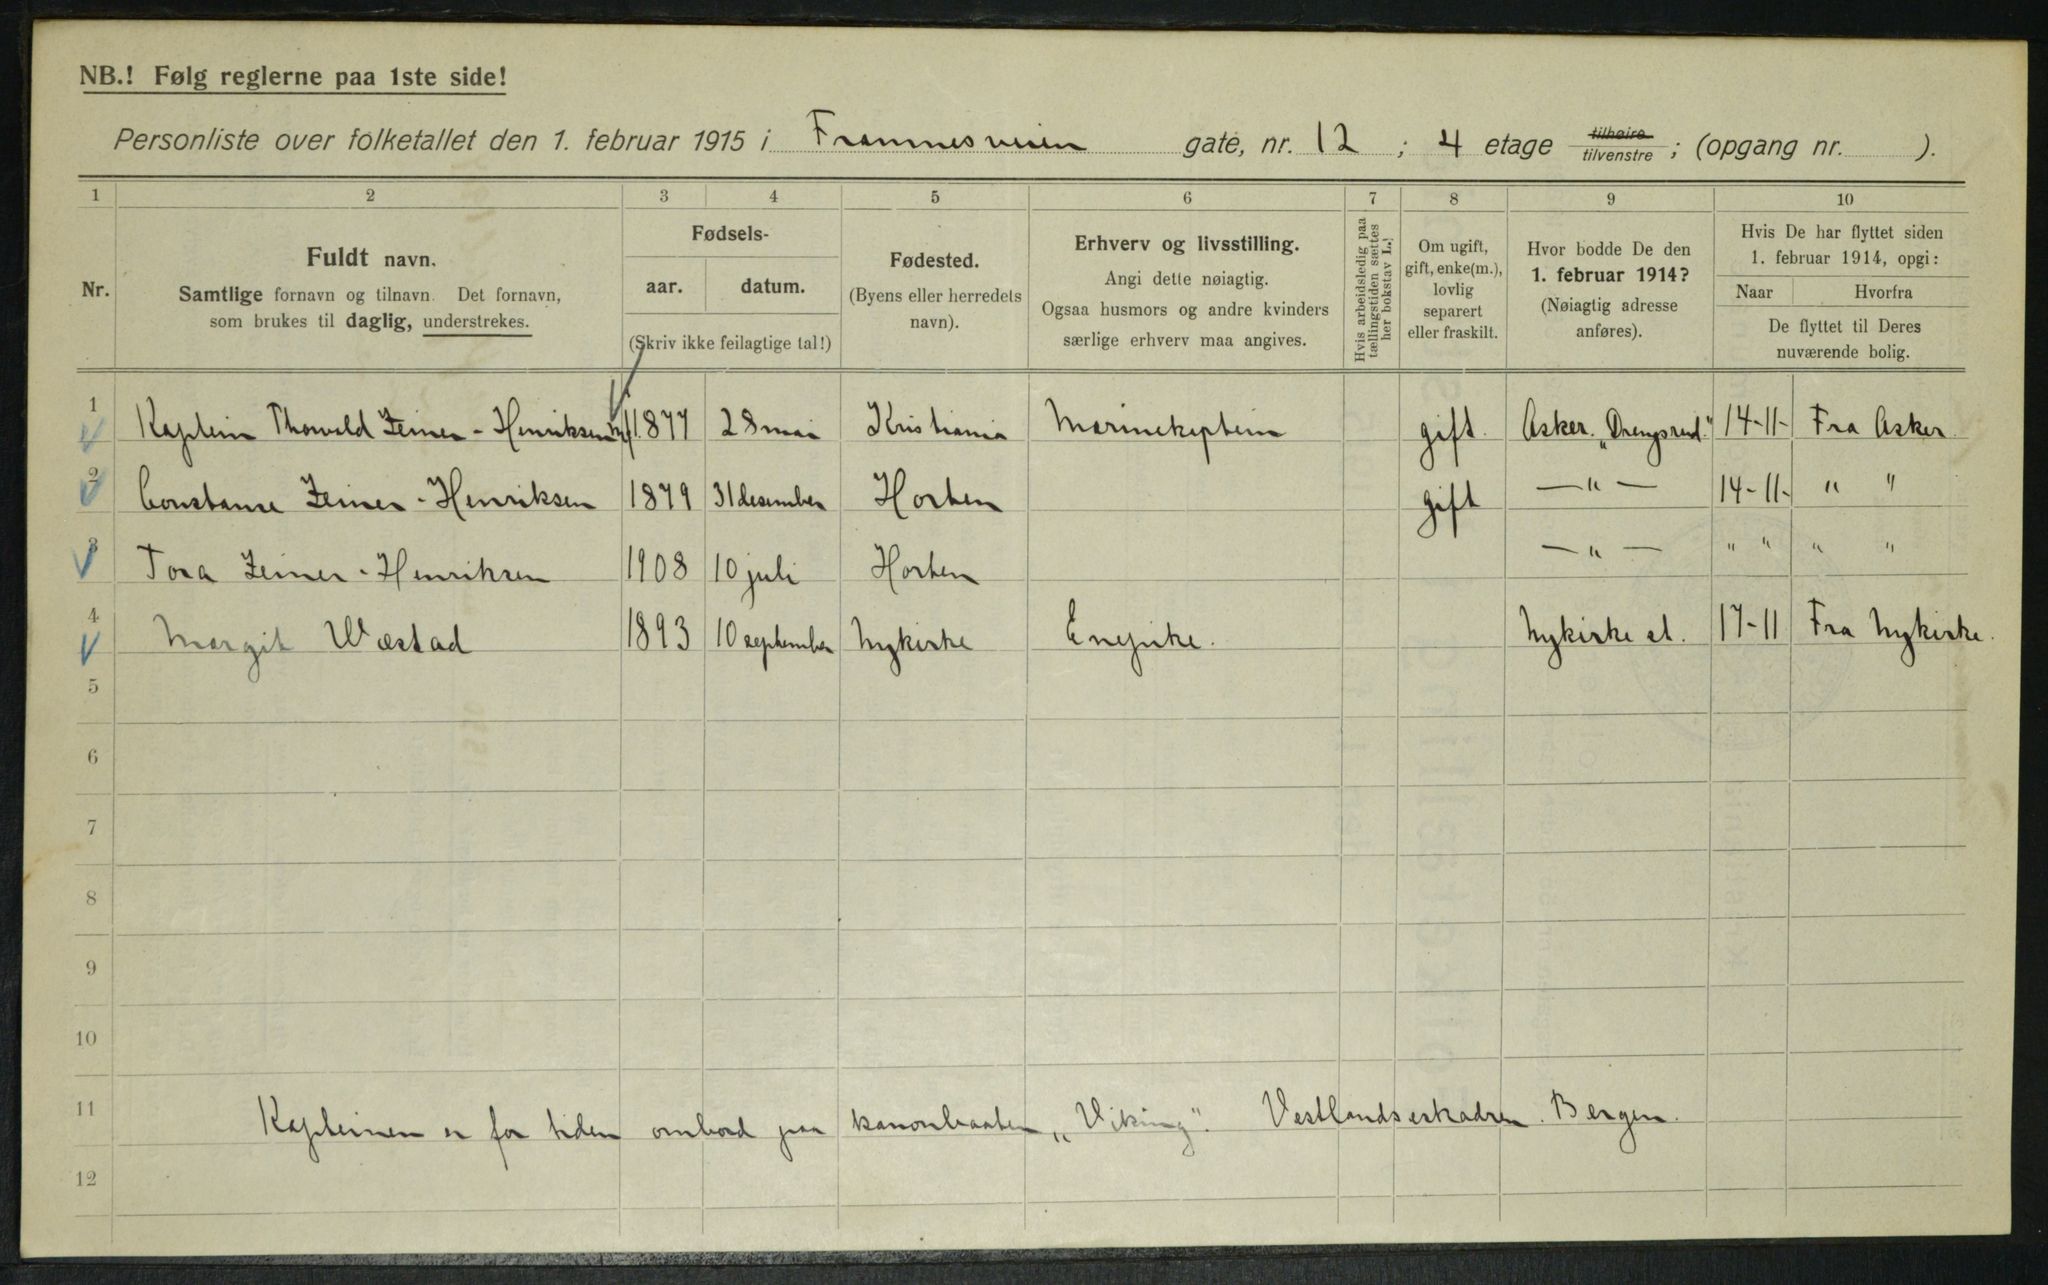 NB.! Følg reglerne paa 1ste side!
Personliste over folketallet den 1. februar 1915 i Framnesveien gate, nr. 12 ; 4 etage tilhøire tilvenstre ; (opgang nr. ).
1 2 3 4 5 6 7 8 9 10
Nr.
Fuldt navn.
Samtlige fornavn og tilnavn. Det fornavn,
som brukes til daglig, understrekes.
Fødsels-
aar. datum.
(Skriv ikke feilagtige tal!)
Fødested.
(Byens eller herredets
navn).
Erhverv og livsstilling.
Angi dette nøiagtig.
Ogsaa husmors og andre kvinders
særlige erhverv maa angives.
Hvis arbeidsledig paa
tællingstiden sættes
her bokstav L.)
Om ugift,
gift, enke(m.),
lovlig
separert
eller fraskilt.
Hvor bodde De den
1. februar 1914?
(Nøiagtig adresse
anføres).
Hvis De har flyttet siden
1. februar 1914, opgi:
Naar Hvorfra
De flyttet til Deres
nuværende bolig.
1 Kaptein Thorvald Zeiner-Henriksen 1877 28 mai Kristiania Marinekaptein gift. Asker. 14-11- Fra Asker.
2 Constanse Zeiner-Henriksen 1879 31 desember Horten gift — " — 14-11- " "
3 Tora Zeiner-Henriksen 1908 10 juli Horten — " — " " " "
4 Margit Wæstad 1893 10 september Nykirke Enepike. Nykirke st. 17-11 Fra Nykirke.
5
6
7
8
9
10
11 Kapteinen er for tiden ombord paa kanonbaaten „Viking". Vestlandseskadren. Bergen.
12